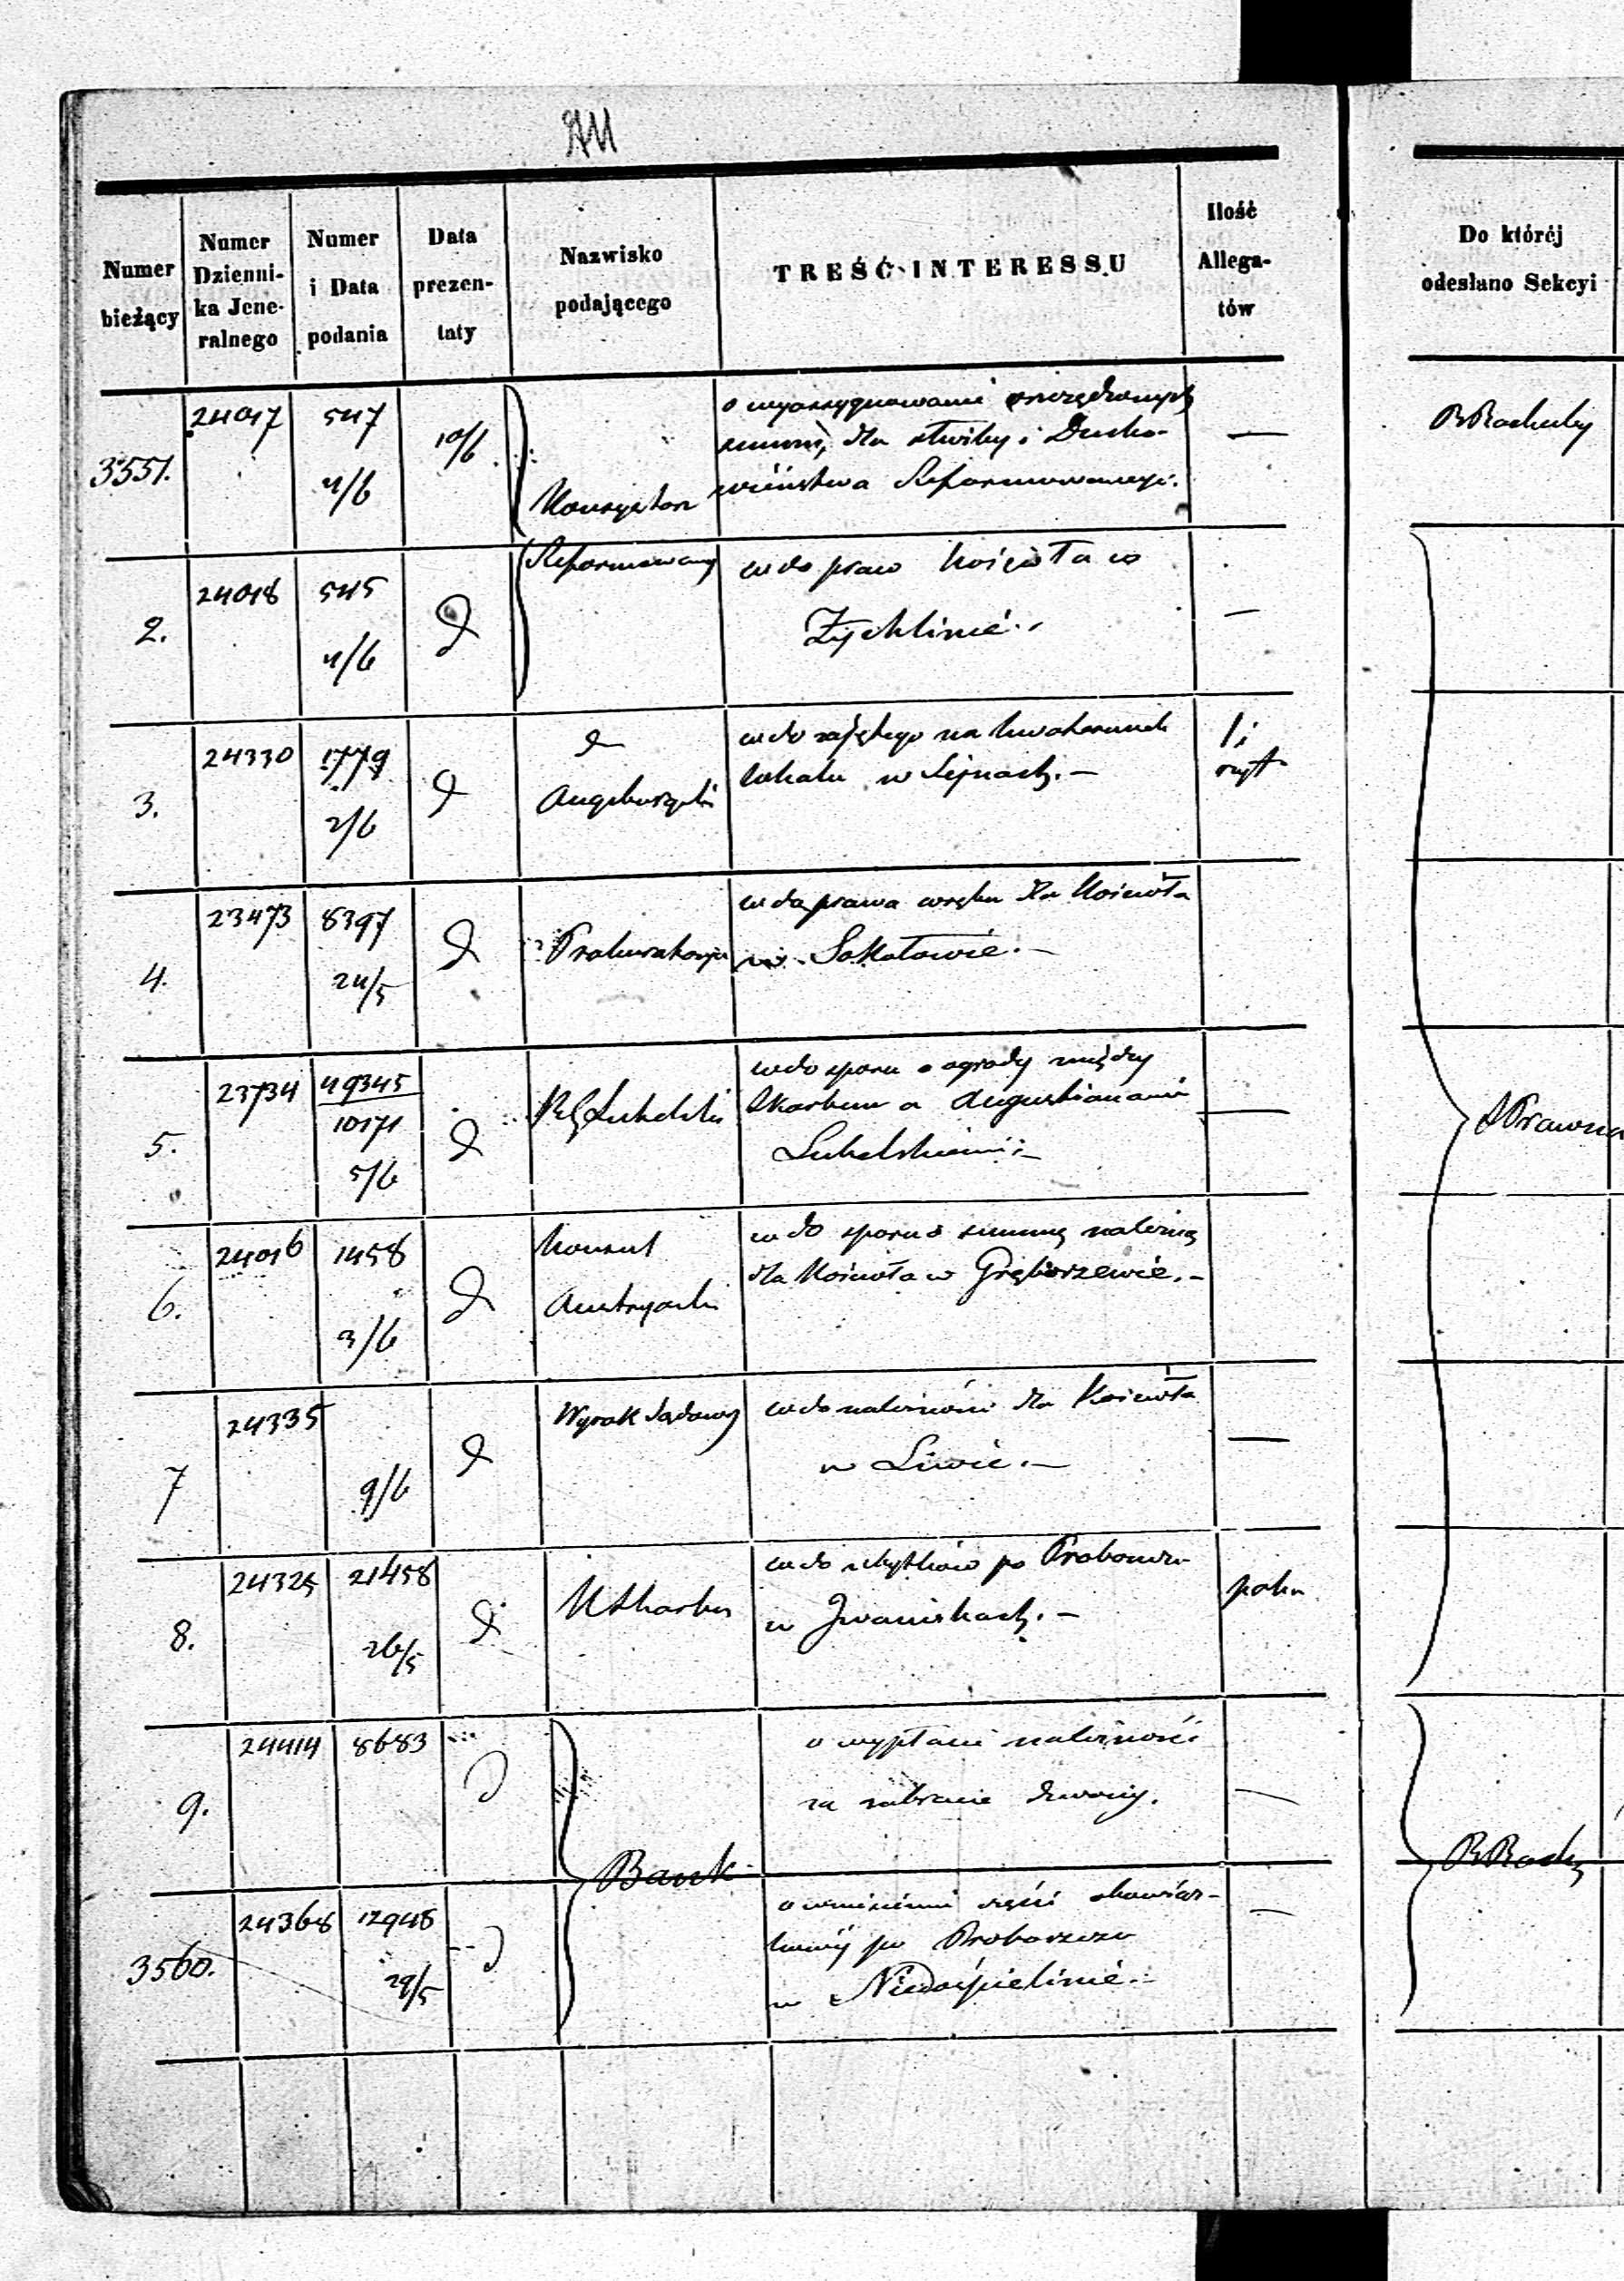 Numer bieżący
Numer Dzienni-ka Jene-ralnego
Numer i Data podania
Data prezen-taty
Nazwisko podającego
TREŚĆ INTERESSU
Ilość Allega-tów
Do któréj odesłano Sekcyi
3551.
24017
547
4/6
10/6
Konsystorz
Reformowany
o wyassygnowanie
summ, dla służby i Ducho-
wieństwa Reformowanego.
—
2.
24018
545
4/6
wdo praw kościoła w
Żychlinie.
—
3.
24330
1779
2/6
Augsburgski
wdo zajętego na kwaterunek
lokalu w Sejnach. —
1 i
4.
23473
8397
24/5
Prokuratorya
wdo prawa wrębu dla Kościoła
w Sokołowie. —
5.
23734
49345
10171
5/6
Lubelski
wdo sporu o ogrody między
Skarbem a Augustianami
Lubelskiemi. —
—
S Prawna
6.
24016
1458
3/6
Konsul
Austryacki
wdo sporu o summę należną
dla Kościoła w
7
24335
9/6
Wyrok Sądowy
wdo należności dla Kościoła
w Liwie. —
—
8.
24325
21458
26/5
K Skarbu
wdo zbytków po Proboszczu
w Iwaniskach. —
9.
24414
8683
o wypłacie należności
za zabrane dzwony.
—
Bank
3560.
24368
12948
29/5
części skowiąz-
po Proboszczu
w Niedośpielinie.
—